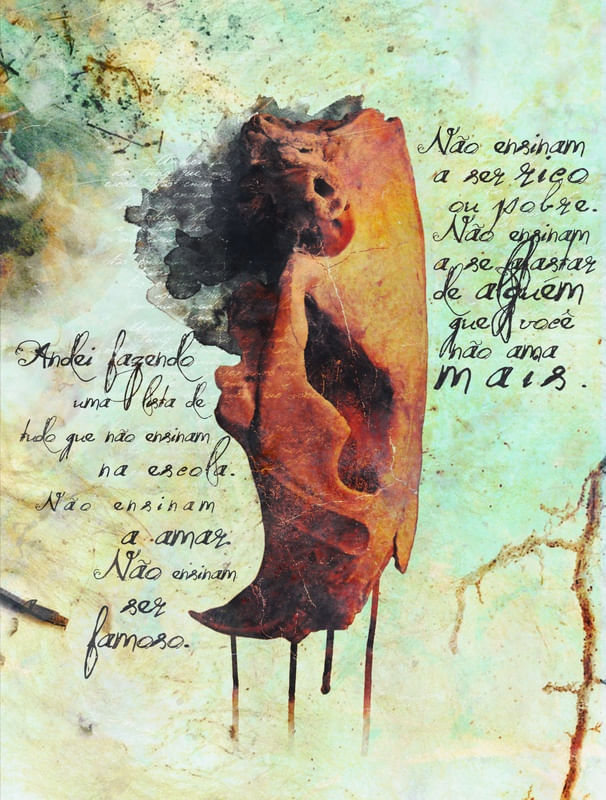 Andei fazendo
uma lista de
tudo que não ensinam
na escola.
Não ensinam
a amar.
Não ensinam
ser
famoso.
Não ensinam
a ser rico
ou pobre.
Não ensinam
a se afastar
de alguém
que você
não ama
mais.